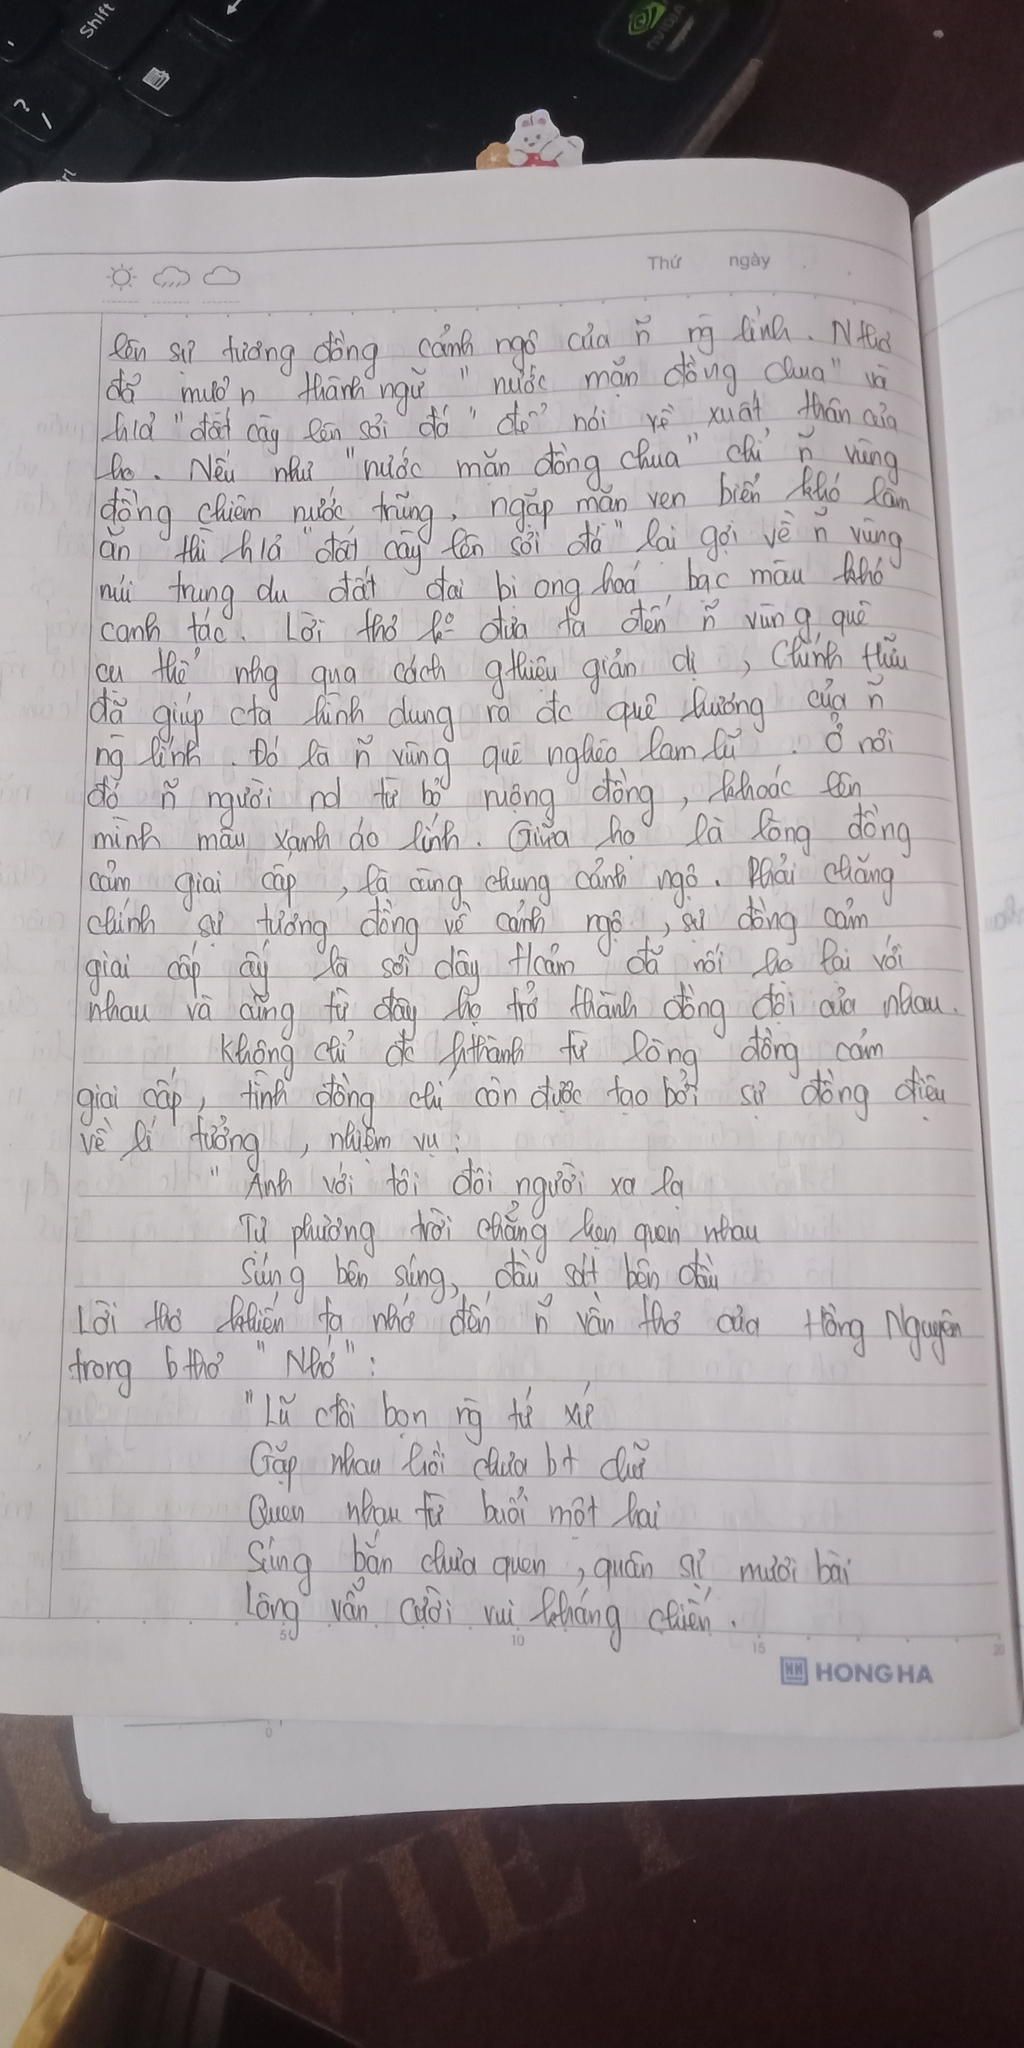 Shift
?
/
NVIDIA
Thứ ngày
lên sự tương đồng cảnh ngộ của ñ ng̃ lính. N thơ
đã mượn thành ngữ "nước mặn đồng chua" và
h/ả "đất cày lên sỏi đá" để nói về xuất thân của
họ. Nếu như "nước mặn đồng chua" chỉ ñ vùng
đồng chiêm nước trũng, ngập mặn ven biển khó làm
ăn thì h/ả "đất cày lên sỏi đá" lại gợi về ñ vùng
núi trung du đất đai bị ong hoá, bạc màu khó
canh tác. Lời thơ ko đưa ta đến ñ vùng quê
cụ thể nhg qua cách gthiệu giản dị, Chính Hữu
đã giúp cta hình dung ra đc quê hương của ñ
ng̃ lính. Đó là ñ vùng quê nghèo lam lũ. Ở nơi
đó ñ người nd từ bỏ ruộng đồng, khoác lên
mình màu xanh áo lính. Giữa họ là lòng đồng
cảm giai cấp, là cùng chung cảnh ngộ. Phải chăng
chính sự tương đồng về cảnh ngộ, sự đồng cảm
giai cấp ấy là sợi dây t/cảm đã nối họ lại với
nhau và cũng từ đây họ trở thành đồng đội của nhau.
Không chỉ đc hthành từ lòng đồng cảm
giai cấp, tình đồng chí còn được tạo bởi sự đồng điệu
về lí tưởng, nhiệm vụ:
"Anh với tôi đôi người xa lạ
Từ phương trời chẳng hẹn quen nhau
Súng bên súng, đầu sát bên đầu
Lời thơ khiến ta nhớ đến ñ vần thơ của Hồng Nguyên
trong b thơ "Nhớ":
"Lũ ctôi bọn ng̃ tứ xứ
Gặp nhau hồi chưa bt chữ
Quen nhau từ buổi một hai
Súng bắn chưa quen, quân sự mươi bài
Lòng vẫn cười vui kháng chiến.
5 10 15 20
HONG HA
0
VIET